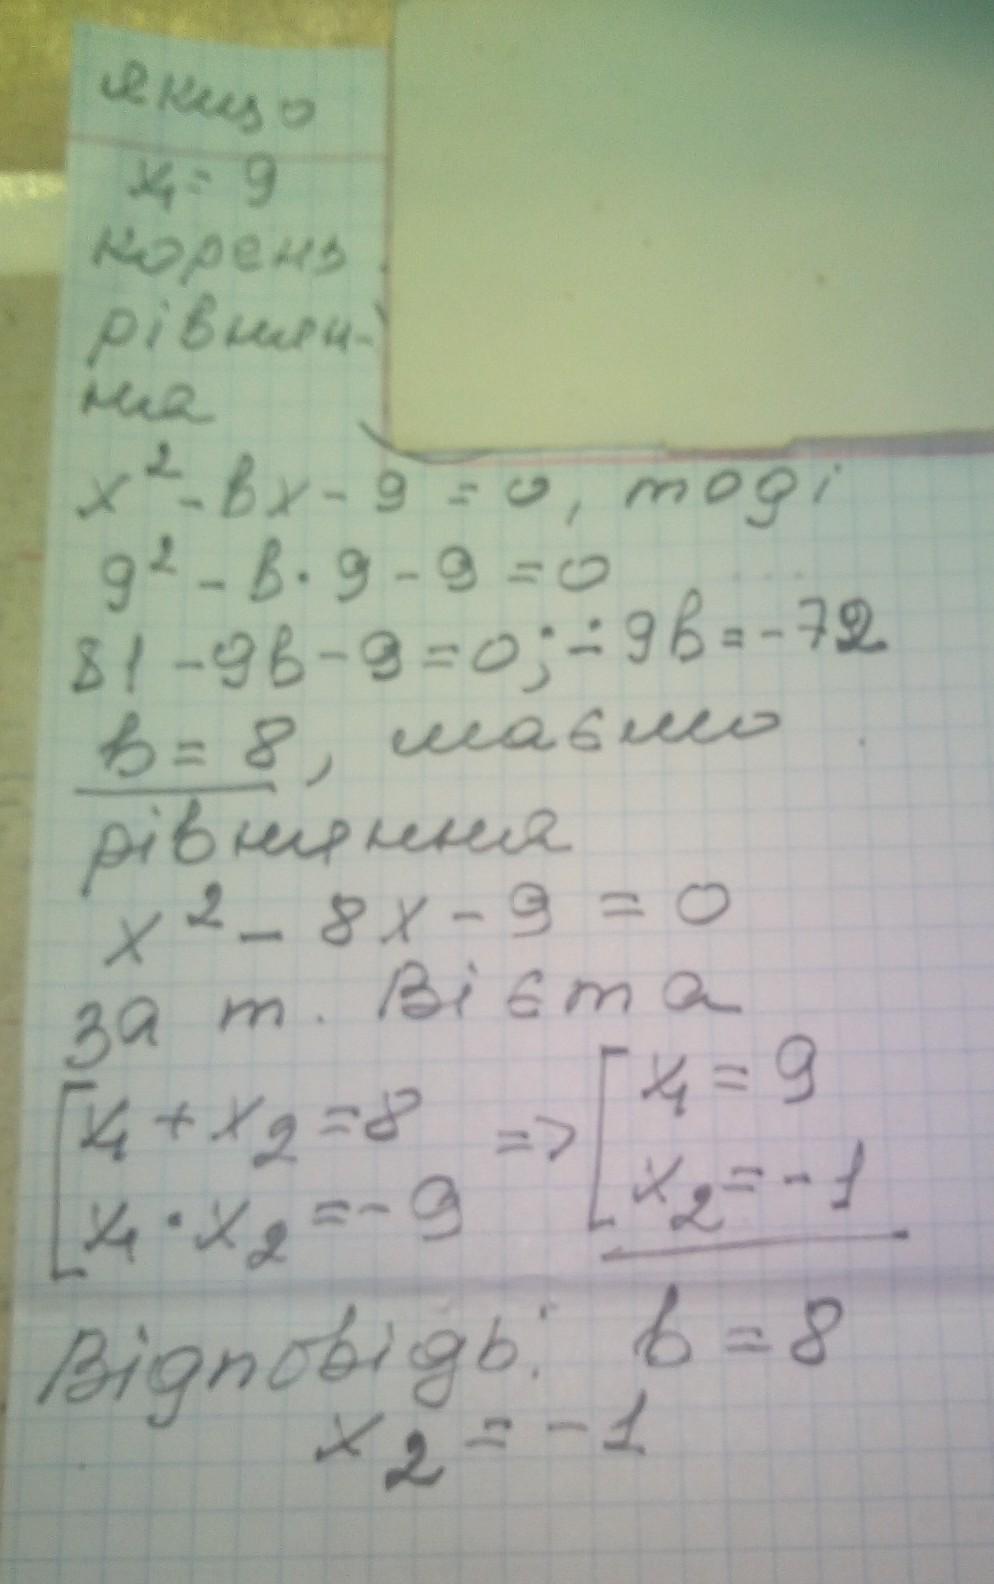 якщо
x₁ = 9
корень
рівнян-
ня
x² - bx - 9 = 0, тоді
9² - b · 9 - 9 = 0
81 - 9b - 9 = 0; - 9b = -72
b = 8, маємо
рівняння
x² - 8x - 9 = 0
за т. Вієта
[x₁ + x₂ = 8 => [x₁ = 9
[x₁ · x₂ = - 9 [x₂ = - 1
Відповідь: b = 8
x₂ = - 1